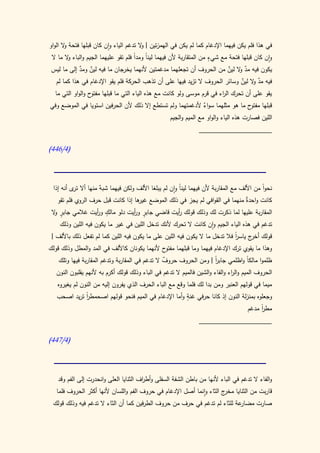 في هذا فلم يكن فيهما الإدغام كما لم يكن في الهمزتين ‏[‏ ولا تدغم الياء وإن كان قبلها فتحة ولا الواو
وإن كان قبلها فتحة مع شيءٍ من المتقاربة لأن فيهما ليناً ومداً فلم تقو عليهما الجيم والباء ولا ما لا
يكون فيه مدٌّ ولا لينٌ من الحروف أن تجعلهما مدغمتين لأنهما يخرجان ما فيه لينٌ ومدٌّ إلى ما ليس
فيه مدٌّ ولا لينٌ وسائر الحروف لا تزيد فيها على أن تذهب الحركة فلم يقو الإدغام في هذا كما لم
يقو على أن تحرك الراء في قرم موسى ولو كانت مع هذه الياء التي ما قبلها مفتوح والواو التي ما
قبلها مفتوح ما هو مثلهما سواءٌ لأدغمتهما ولم تستطع إلا ذلك لأن الحرفين استويا في الموضع وفي
اللين فصارت هذه الياء والواو مع الميم والجيم
(446/4)
نحواً من الألف مع المقاربة لأن فيهما ليناً وإن لم يبلغا الألف ولكن فيهما شبهٌ منها ألا ترى أنه إذا
كانت واحدةٌ منهما في القوافي لم يجز في ذلك الموضع غيرها إذا كانت قبل حرف الروي فلم تقو
المقاربة عليها لما ذكرت لك وذلك قولك رأيت قاضي جابر ورأيت دلو مالكٍ ورأيت غلامي جابر ولا
تدغم في هذه الياء الجيم وإن كانت لا تحرك لأنك تدخل اللين في غير ما يكون فيه اللين وذلك
قولك أخرج ياسراً فلا تدخل ما لا يكون فيه اللين على ما يكون فيه اللين كما لم تفعل ذلك بالألف ‏[‏
وهذا ما يقوي ترك الإدغام فيهما وما قبلهما مفتوح لأنهما يكونان كالألف في المد والمطل وذلك قولك
ظلموا مالكاً واظلمي جابراً ‏[‏ ومن الحروف حروفٌ لا تدغم في المقاربة وتدغم المقاربة فيها وتلك
الحروف الميم والراء والفاء والشين فالميم لا تدغم في الباء وذلك قولك أكرم به لأنهم يقلبون النون
ميما في قولهم العنبر ومن بدا لك فلما وقع مع الباء الحرف الذي يفرون إليه من النون لم يغيروه
وجعلوه بمنزلة النون إذ كانا حرفي غنةٍ وأما الإدغام في الميم فنحو قولهم اصحمطراً تريد اصحب
مطراً مدغم
(447/4)
والفاء لا تدغم في الباء لأنها من باطن الشفة السفلى وأطراف الثنايا العلى وانحدرت إلى الفم وقد
قاربت من الثنايا مخرج الثاء وإنما أصل الإدغام في حروف الفم واللسان لأنها أكثر الحروف فلما
صارت مضارعة للثاء لم تدغم في حرف من حروف الطرفين كما أن الثاء لا تدغم فيه وذلك قولك